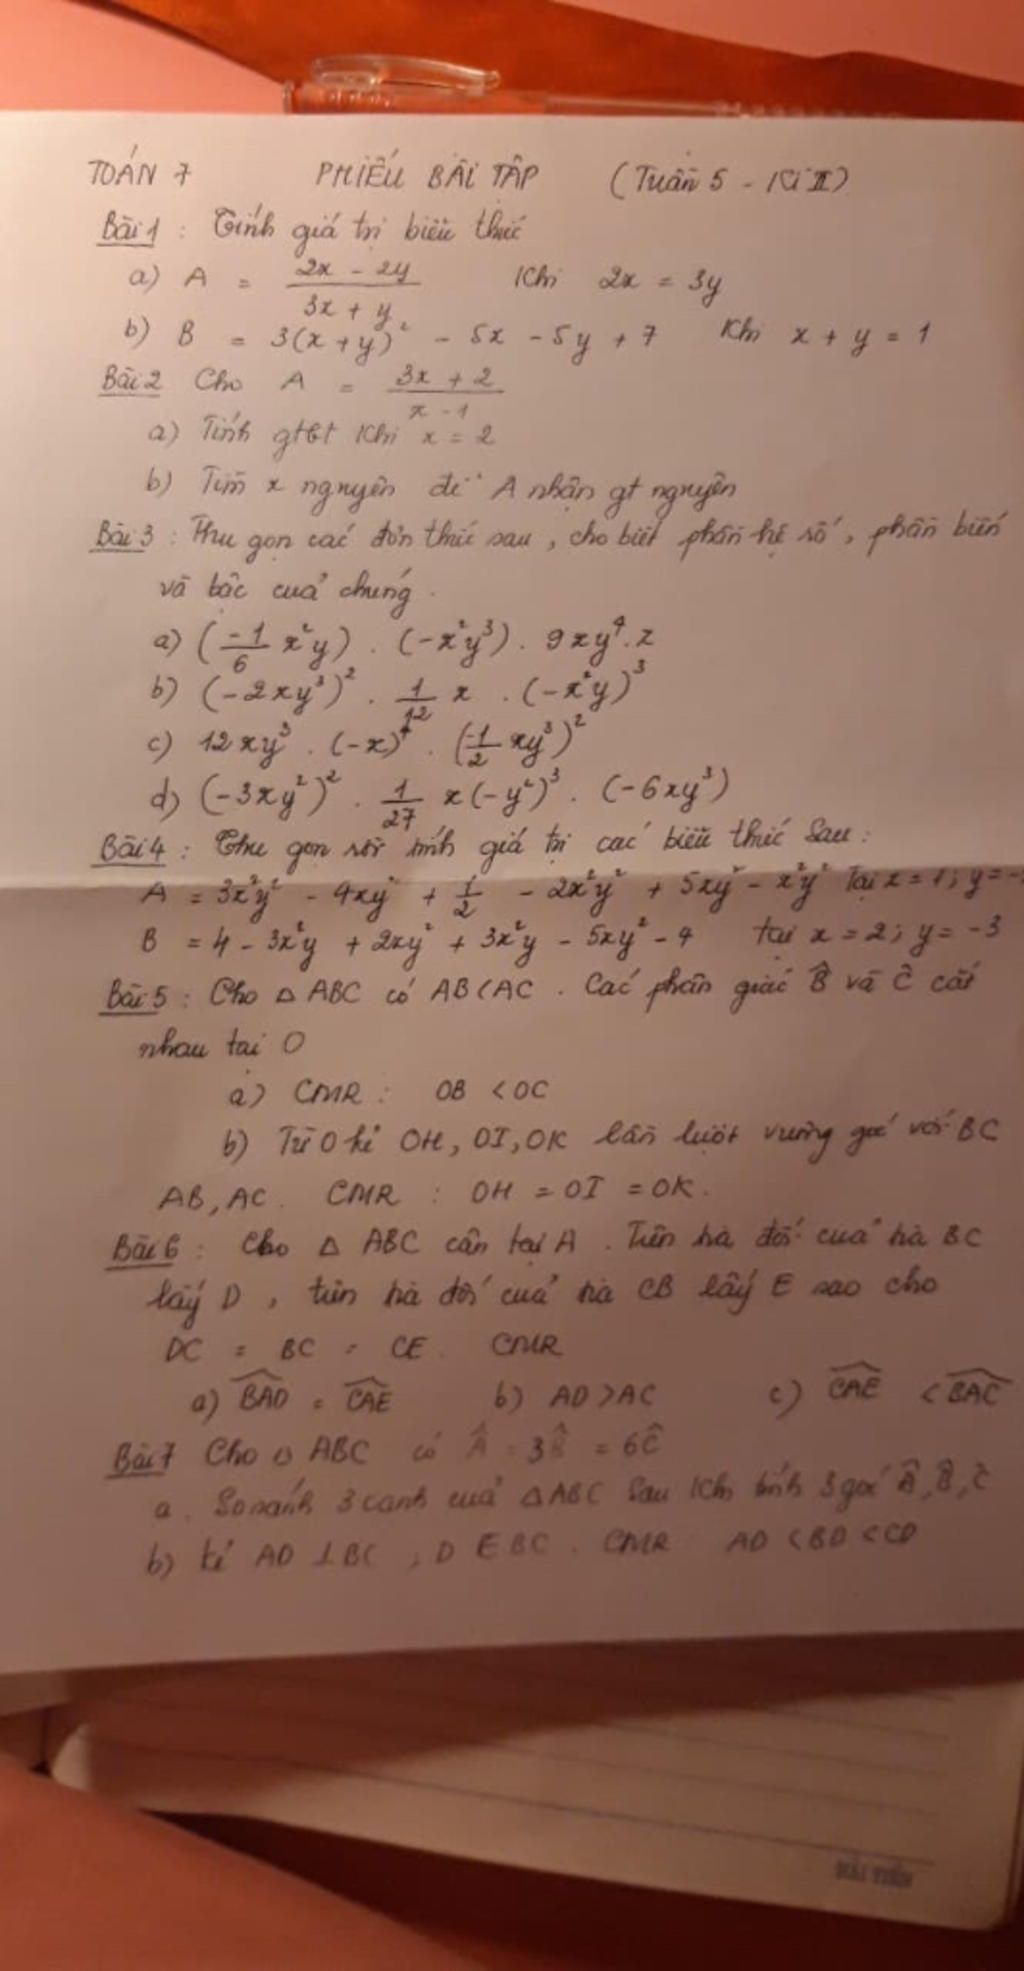 TOÁN 7 PHIẾU BÀI TẬP (Tuần 5 - Kì II)
Bài 1 : Tính giá trị biểu thức
a) A = (2x - 2y)/(3x + y) Khi 2x = 3y
b) B = 3(x + y)² - 5x - 5y + 7 Khi x + y = 1
Bài 2 Cho A = (3x + 2)/(x - 1)
a) Tính gtbt Khi x = 2
b) Tìm x nguyên để A nhận gt nguyên
Bài 3 : Thu gọn các đơn thức sau, cho biết phần hệ số, phần biến
và bậc của chúng.
a) (-1/6 x²y) . (-x²y³) . 9xy⁴.z
b) (-2xy³)² . 1/12 x . (-x²y)³
c) 12xy³ . (-x)⁴ . (-1/2 xy³)²
d) (-3xy²)² . 1/27 x(-y²)³ . (-6xy³)
Bài 4 : Thu gọn rồi tính giá trị các biểu thức sau :
A = 3x²y² - 4xy² + 1/2 - 2x²y² + 5xy² - x²y² Tại x = 1; y = -
B = 4 - 3x²y + 2xy² + 3x²y - 5xy² - 4 tại x = 2; y = -3
Bài 5 : Cho △ ABC có AB < AC . Các phân giác B̂ và Ĉ cắt
nhau tại O
a) CMR : OB < OC
b) Từ O kẻ OH, OI, OK lần lượt vuông góc với BC
AB, AC. CMR : OH = OI = OK.
Bài 6 : Cho △ ABC cân tại A . Trên tia đối của tia BC
lấy D , trên tia đối của tia CB lấy E sao cho
DC = BC = CE. CMR
a) BAD = CAE b) AD > AC c) CAE < BAC
Bài 7 Cho △ ABC có Â = 3B̂ = 6Ĉ
a. So sánh 3 cạnh của △ABC sau khi tính 3 góc Â, B̂, Ĉ
b) kẻ AD ⊥ BC , D ∈ BC . CMR AD < BD < CD